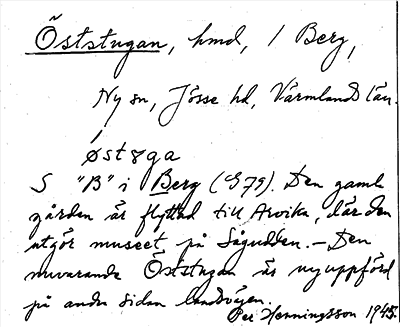 Öststugan, hmd, 1 Berg,
Ny sn, Jösse hd, Värmlands län.
øst ga
S "B" i Berg (G79). Den gamla
gården är flyttad till Arvika, där den
utgör museet på Sågudden. — Den
nuvarande Öststugan är nyuppförd
på andra sidan landsvägen.
Per Henningsson 1945.